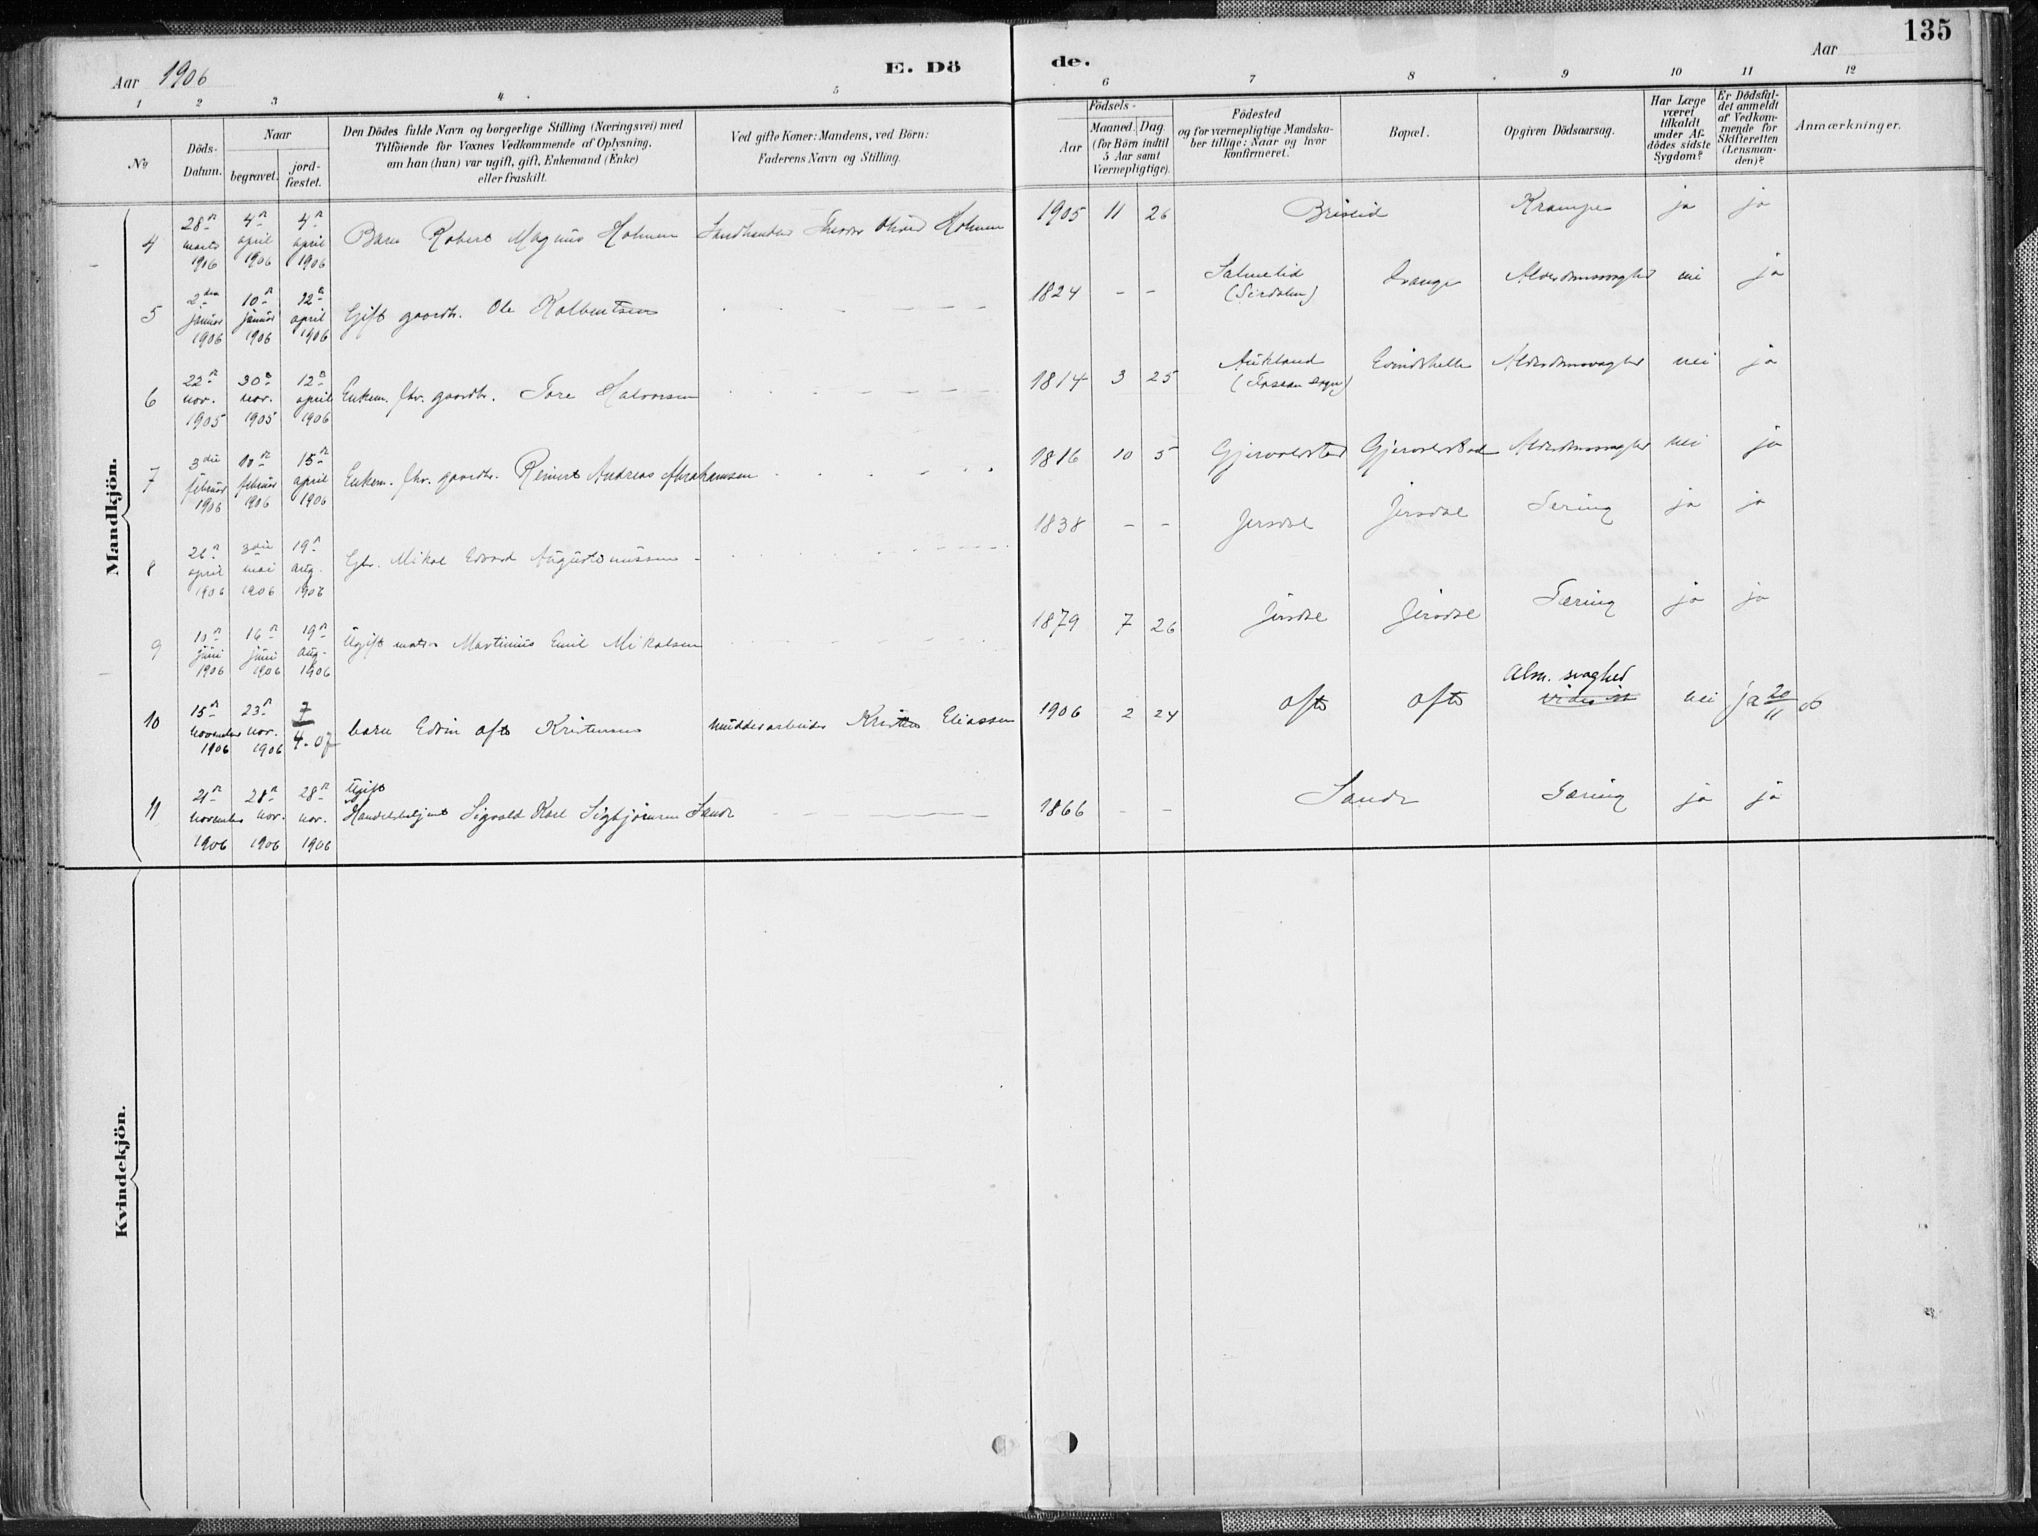 135
Aar 1906
E. Dö
de.
Aar
1 2 3 4 5 6 7 8 9 10 11 12
No
Döds-
Datum.
Naar
begravet.
jord-
fæstet.
Den Dödes fulde Navn og borgerlige Stilling (Næringsvei) med
Tilföiende for Voxnes Vedkommende af Oplysning,
om han (hun) var ugift, gift, Enkemand (Enke)
eller fraskilt.
Ved gifte Koner: Mandens, ved Börn:
Faderens Navn og Stilling.
Födsels-
Aar
Maaned. Dag.
(for Börn indtil
5 Aar samt
Værnepligtige).
Födested
og for værnepligtige Mandska-
ber tillige: Naar og hvor
konfirmeret.
Bopæl.
Opgiven Dödsaarsag.
Har Læge
været
tilkaldt
under Af-
dödes sidste
Sygdom?
Er Dödsfal-
det anmeldt
af Vedkom-
mende for
Skifteretten
(Lensman-
den)?
Anmærkninger.
Mandkjön.
4 28de marts 1906 4de april 1906 4de april 1906 Barn Robert Magnus Holmen Landhandler Holmen 1905 11 26 Briseid Krampe ja ja
5 2den januar 1906 10de januar 1906 22de april 1906 Gift gaardbr. Ole Kolbentsen 1824 - - Salmelid (Sirdalen) Svange Alderdomssvaghed nei ja
6 22de nov. 1905 30te nov. 1905 12te april 1906 Enkem. fhv. gaardbr. Tore Halvorsen 1814 3 25 Aukland (Fosaan sogn) Eivindshelle Alderdomssvaghed nei ja
7 3die februar 1906 10de februar 1906 15de april 1906 Enkem. fhv. gaardbr. Reinert Andreas Abrahamsen 1816 10 5 Gjervoldstad Gjervoldstad Alderdomssvaghed nei ja
8 april 1906 3die mai 1906 19de aug. 1906 Gbr. Mikal Edvard Augustinussen 1838 - - Jersdal Jersdal Tæring ja ja
9 juni 1906 16de juni 1906 19de aug. 1906 Ugift matros Martinius Emil Mikalsen 1879 7 26 Jersdal Jersdal Tæring ja ja
10 15de november 1906 23de nov. 1906 7/4-07 barn Edvin Kristensen mudderarbeider Eliassen 1906 2 24 Alm. svaghed nei ja 20/11 06
11 21de november 1906 28de nov. 1906 28de nov. 1906 Ugift Handelsbetjent Sigvald Karl Sigbjørnsen Sande 1866 - - Sande Tæring ja ja
Kvindekjön.